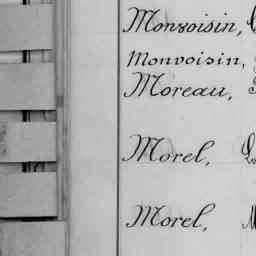 Monvoisin,
Monvoisin,
Moreau,
Morel,
Morel,